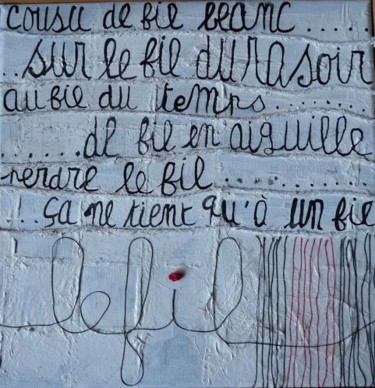 cousu de fil blanc ......
...sur le fil du rasoir
au fil du temps ..........
.......de fil en aiguille
perdre le fil .............
...ça ne tient qu'à un fil
le fil